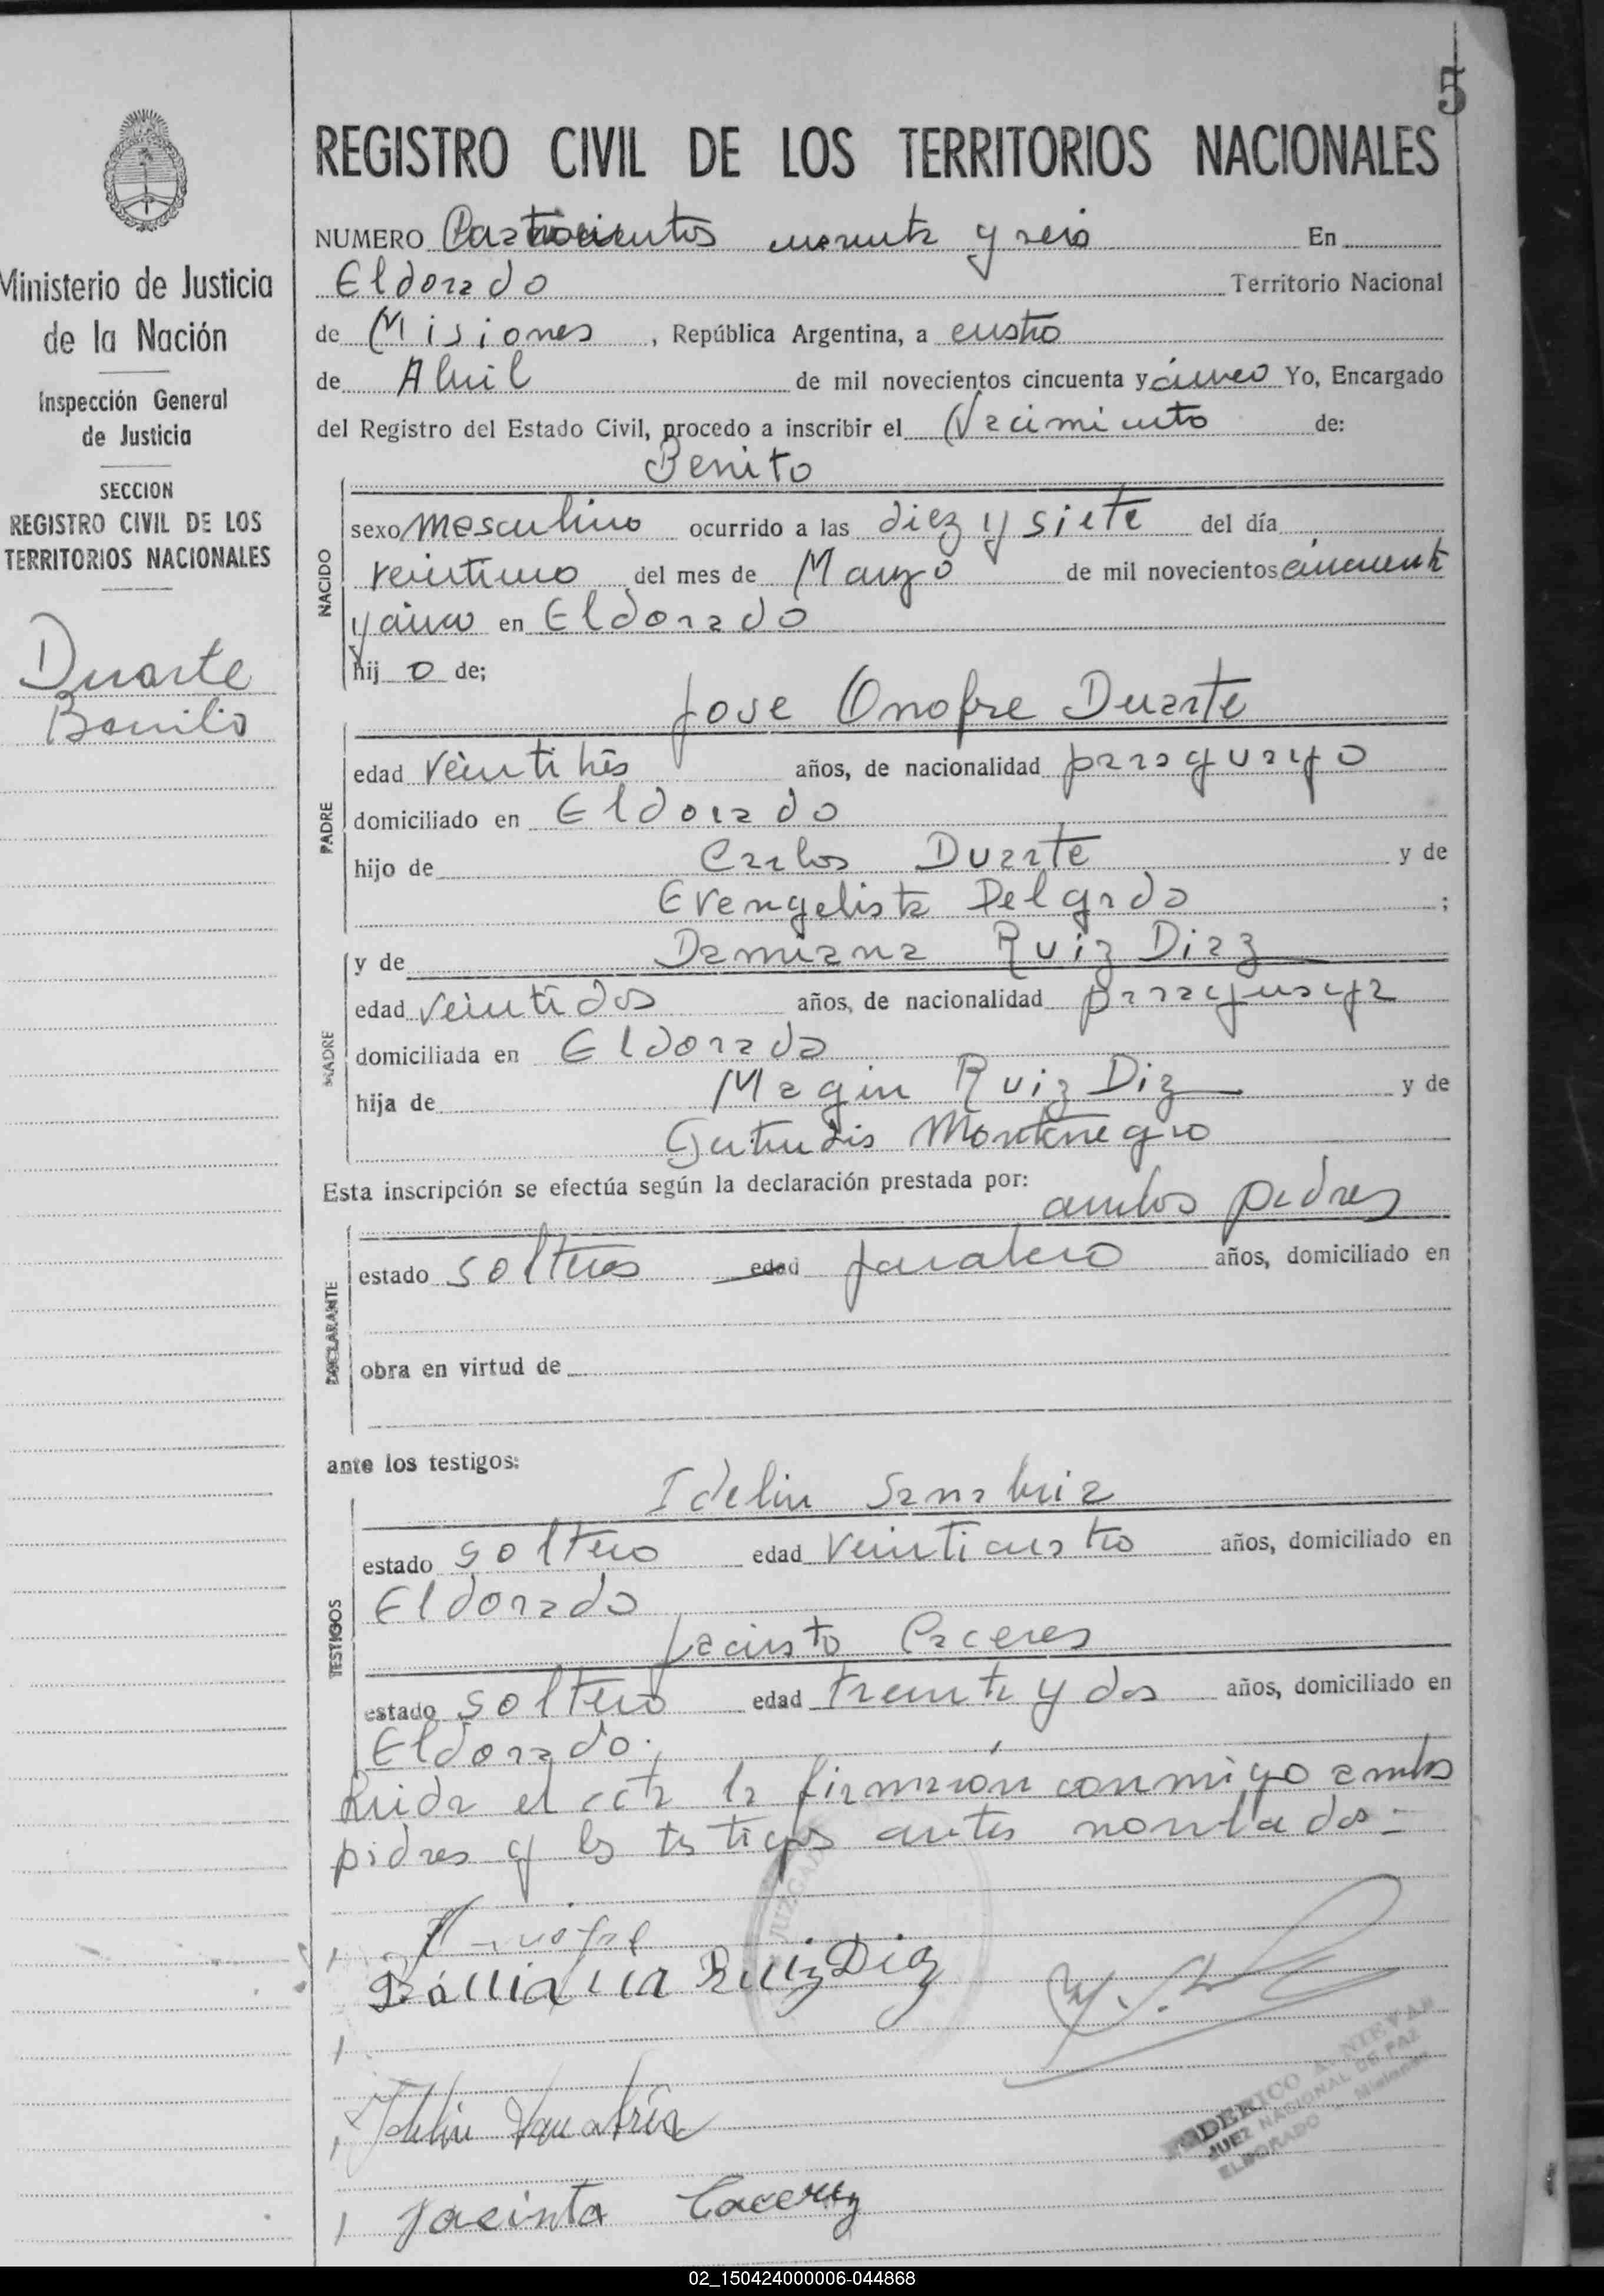 5
REGISTRO CIVIL DE LOS TERRITORIOS NACIONALES
Ministerio de Justicia
de la Nación
Inspección General
de Justicia
SECCION
REGISTRO CIVIL DE LOS
TERRITORIOS NACIONALES
Duarte
Benito
NUMERO cuarenta y seis En
Eldorado Territorio Nacional
de Misiones, República Argentina, a cuatro
de Abril de mil novecientos cincuenta y cinco Yo, Encargado
del Registro del Estado Civil, procedo a inscribir el Nacimiento de:
Benito
NACIDO
sexo masculino ocurrido a las diez y siete del día
veintiuno del mes de Marzo de mil novecientos cincuenta
y cinco en Eldorado
hij o de;
Jose Onofre Duarte
PADRE
edad veintitrés años, de nacionalidad paraguayo
domiciliado en Eldorado
hijo de Carlos Duarte y de
Evangelista Delgado ;
y de Damiana Ruiz Diaz
MADRE
edad veintidos años, de nacionalidad paraguaya
domiciliada en Eldorado
hija de Magin Ruiz Diz y de
Gertrudis Montenegro
Esta inscripción se efectúa según la declaración prestada por:
ambos padres
DECLARANTE
estado solteros edad jornalero años, domiciliado en
obra en virtud de
ante los testigos:
Idelin Sanabria
TESTIGOS
estado soltero edad veinticuatro años, domiciliado en
Eldorado
Jacinto Caceres
estado soltero edad treinta y dos años, domiciliado en
Eldorado.
Leida el acta la firmaron conmigo ambos
padres y los testigos antes nombrados=
JUZGADO
Damiana Ruiz Diaz
Idelin Sanabria
Jacinto Caceres
FEDERICO A. NIEVAS
JUEZ NACIONAL DE PAZ
ELDORADO - Misiones
02_150424000006-044868